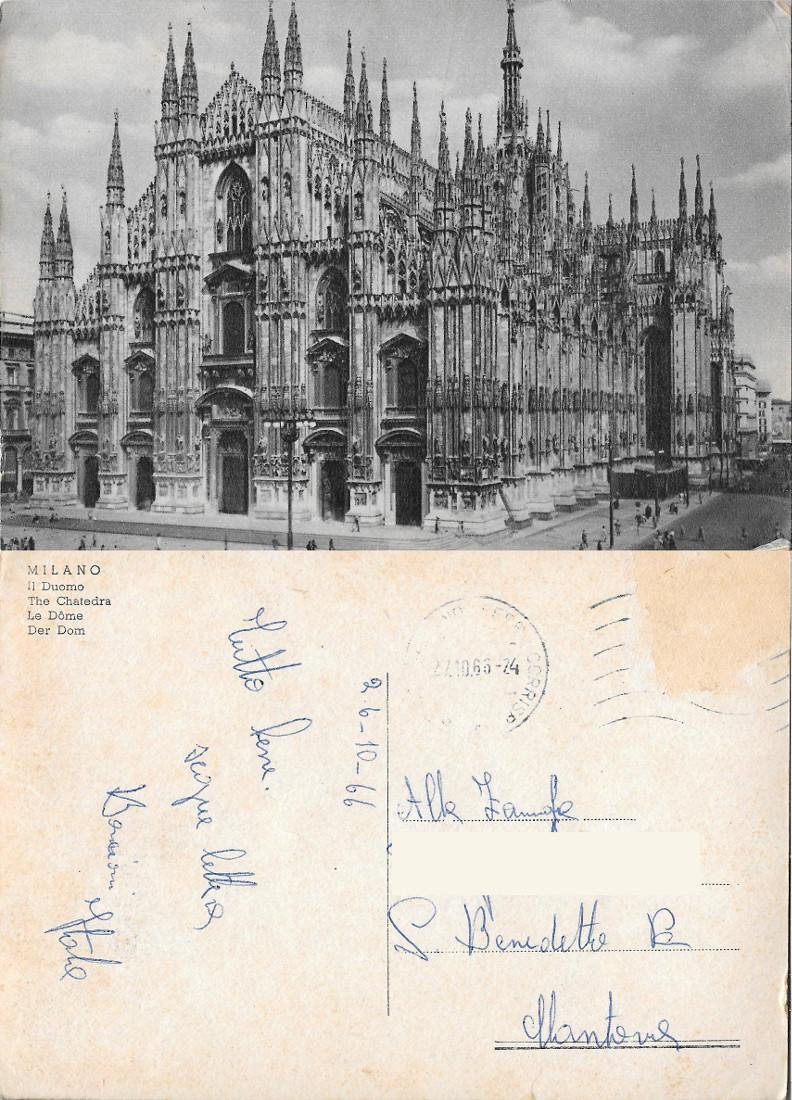 MILANO
Il Duomo
The Chatedra
Le Dôme
Der Dom
Tutto bene.
segue lettera
Bacioni
26-10-66
CORRISP
27.10.66-24
Alla
S. Benedetto Po
Mantova